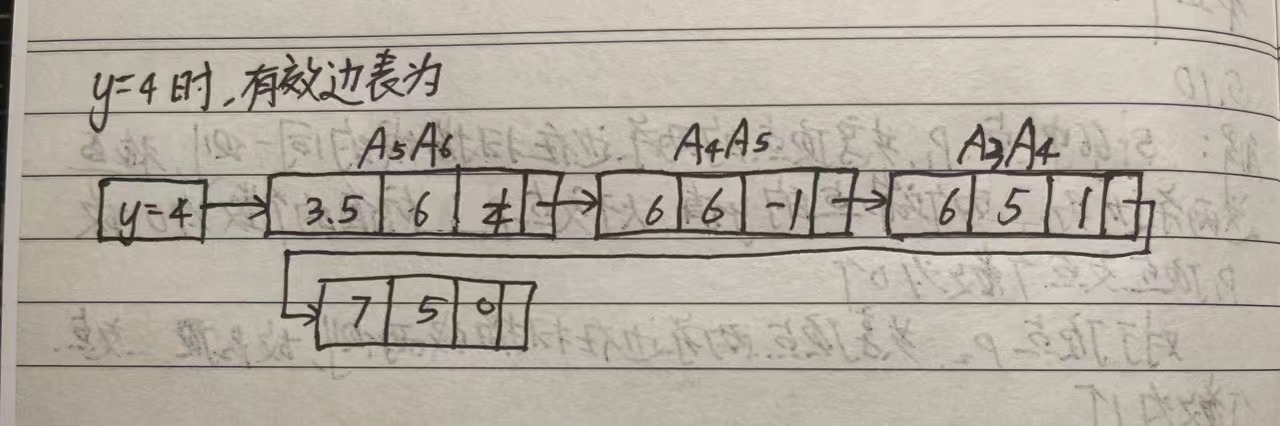 y=4时,有效边表为
A5A6 A4A5 A3A4
y=4 3.5 6 6 6 -1 6 5 1
7 5 0